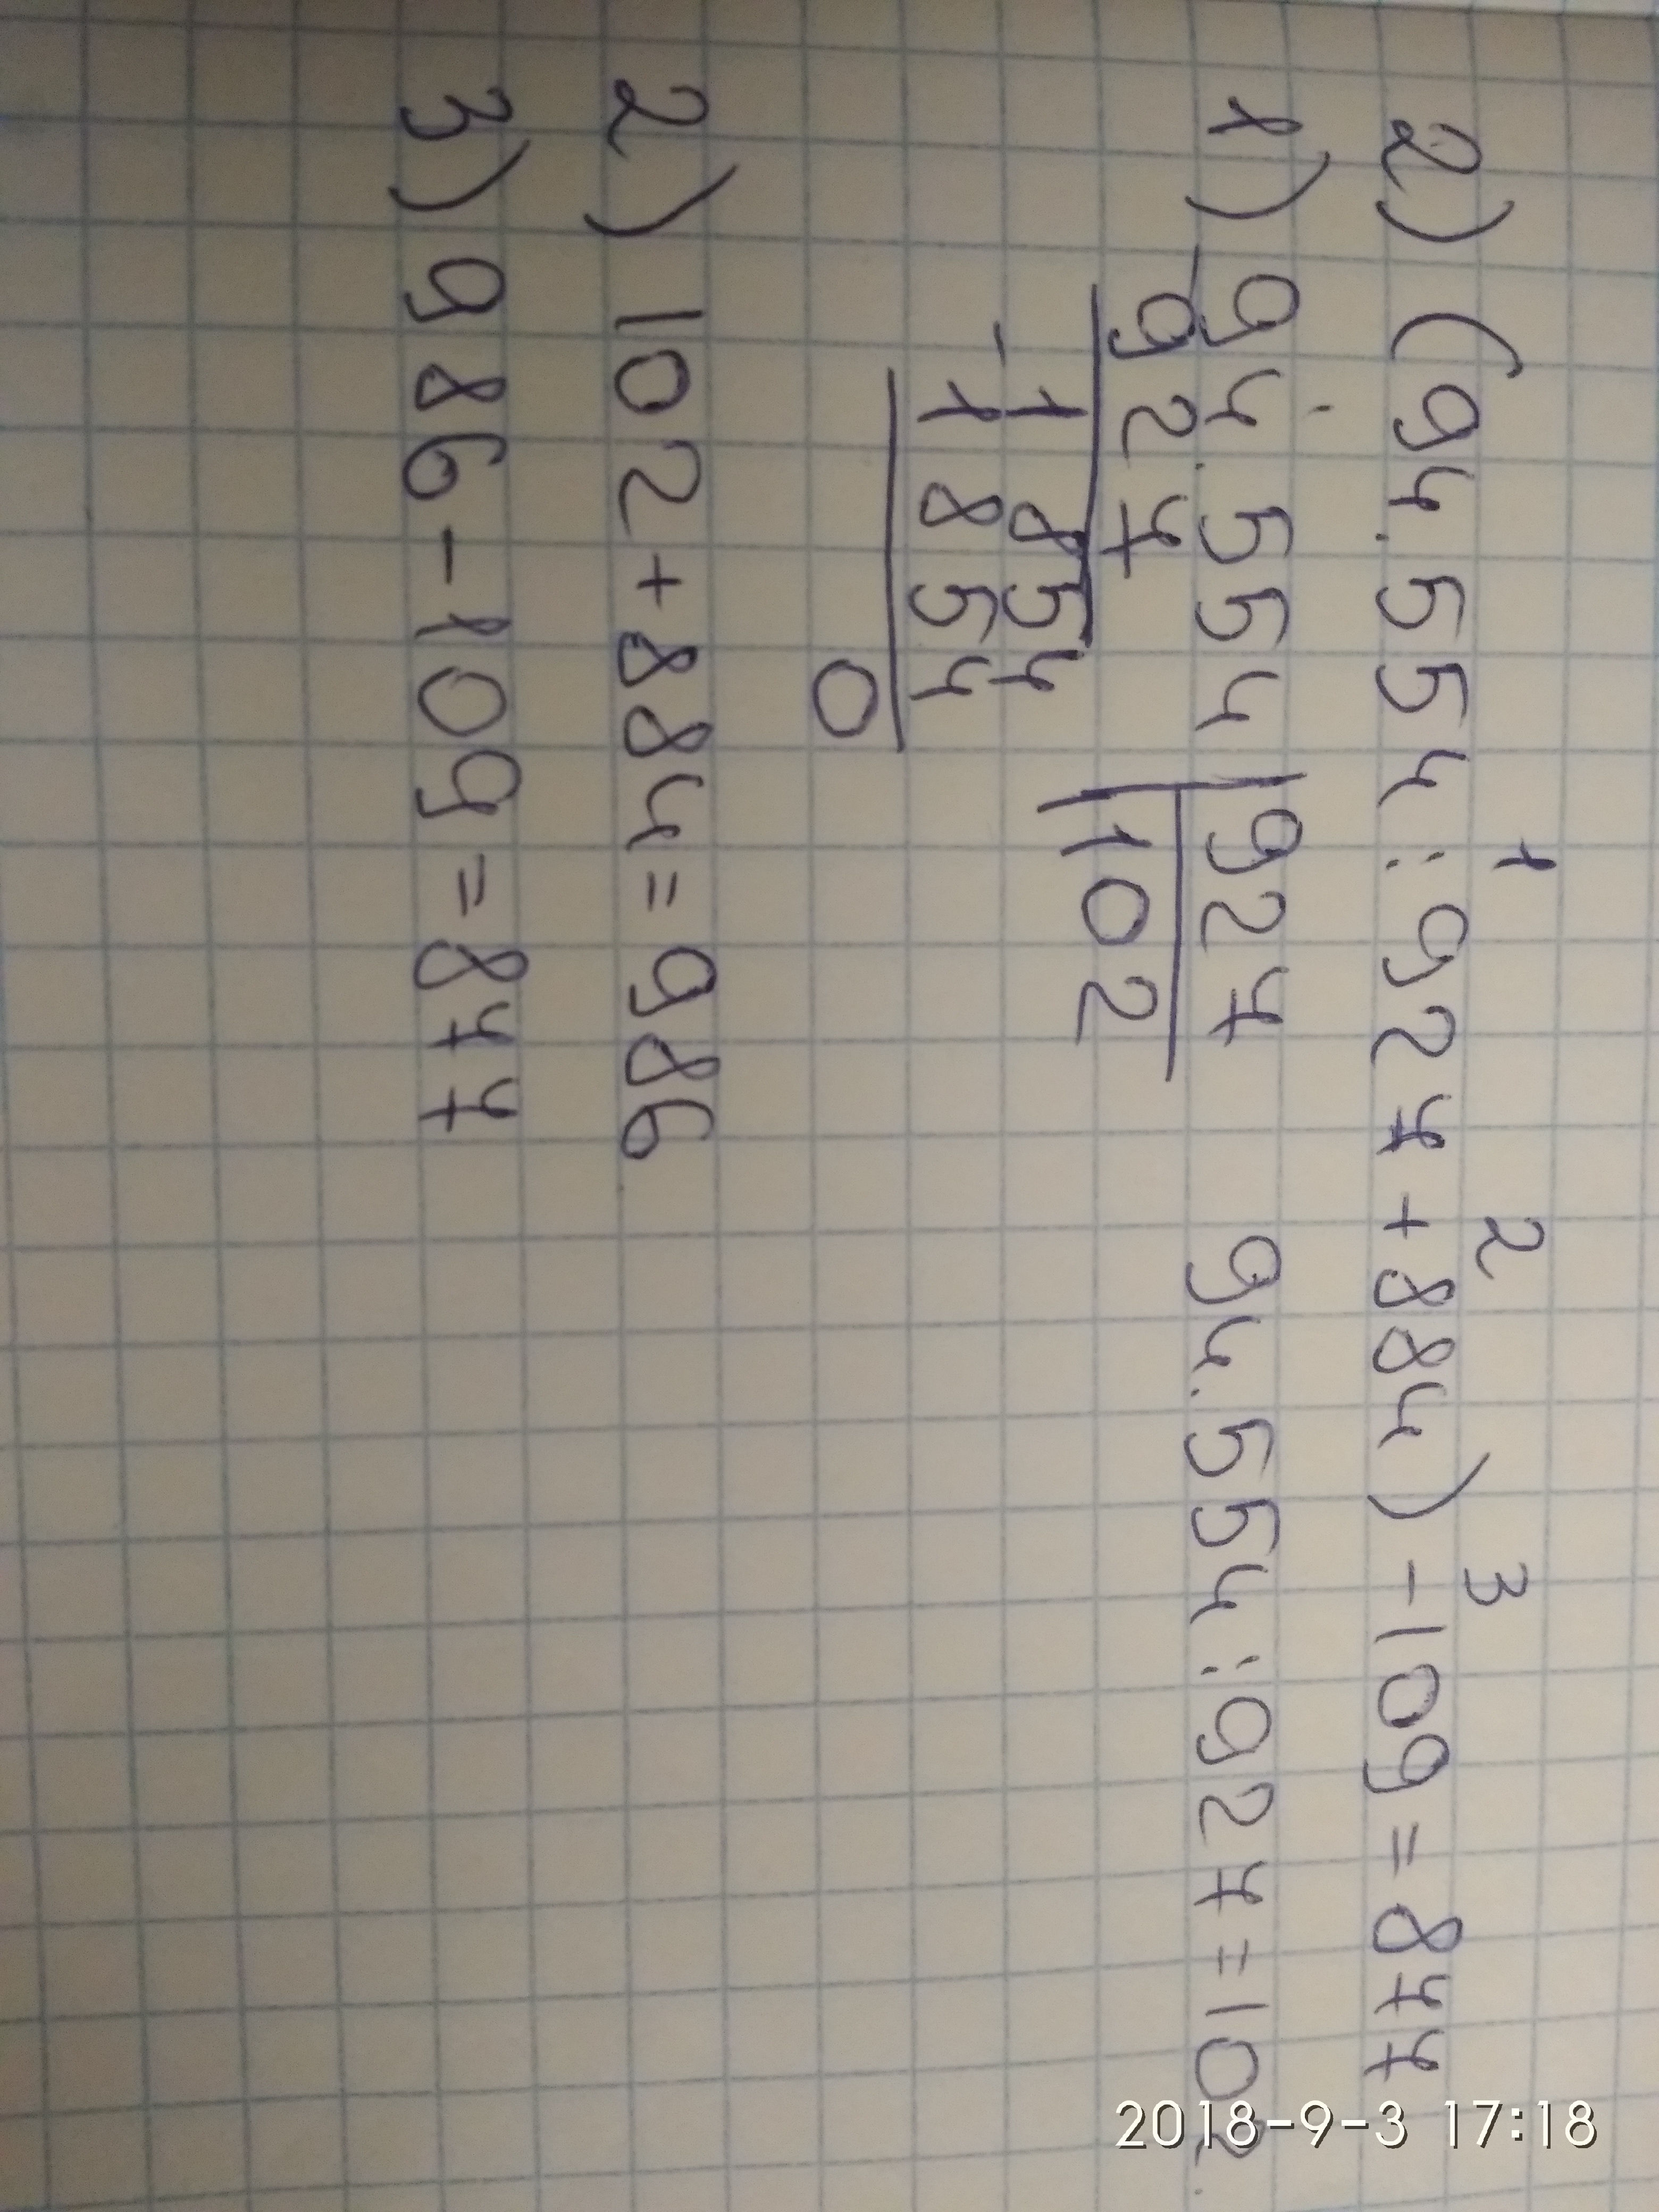 1 2 3
2) (94.554 : 927 + 884) - 109 = 877
1) 94.554 | 927 94.554 : 927 = 102.
- 927 | 102
1854
- 1854
0
2) 102 + 884 = 986
3) 986 - 109 = 877
2018-9-3 17:18